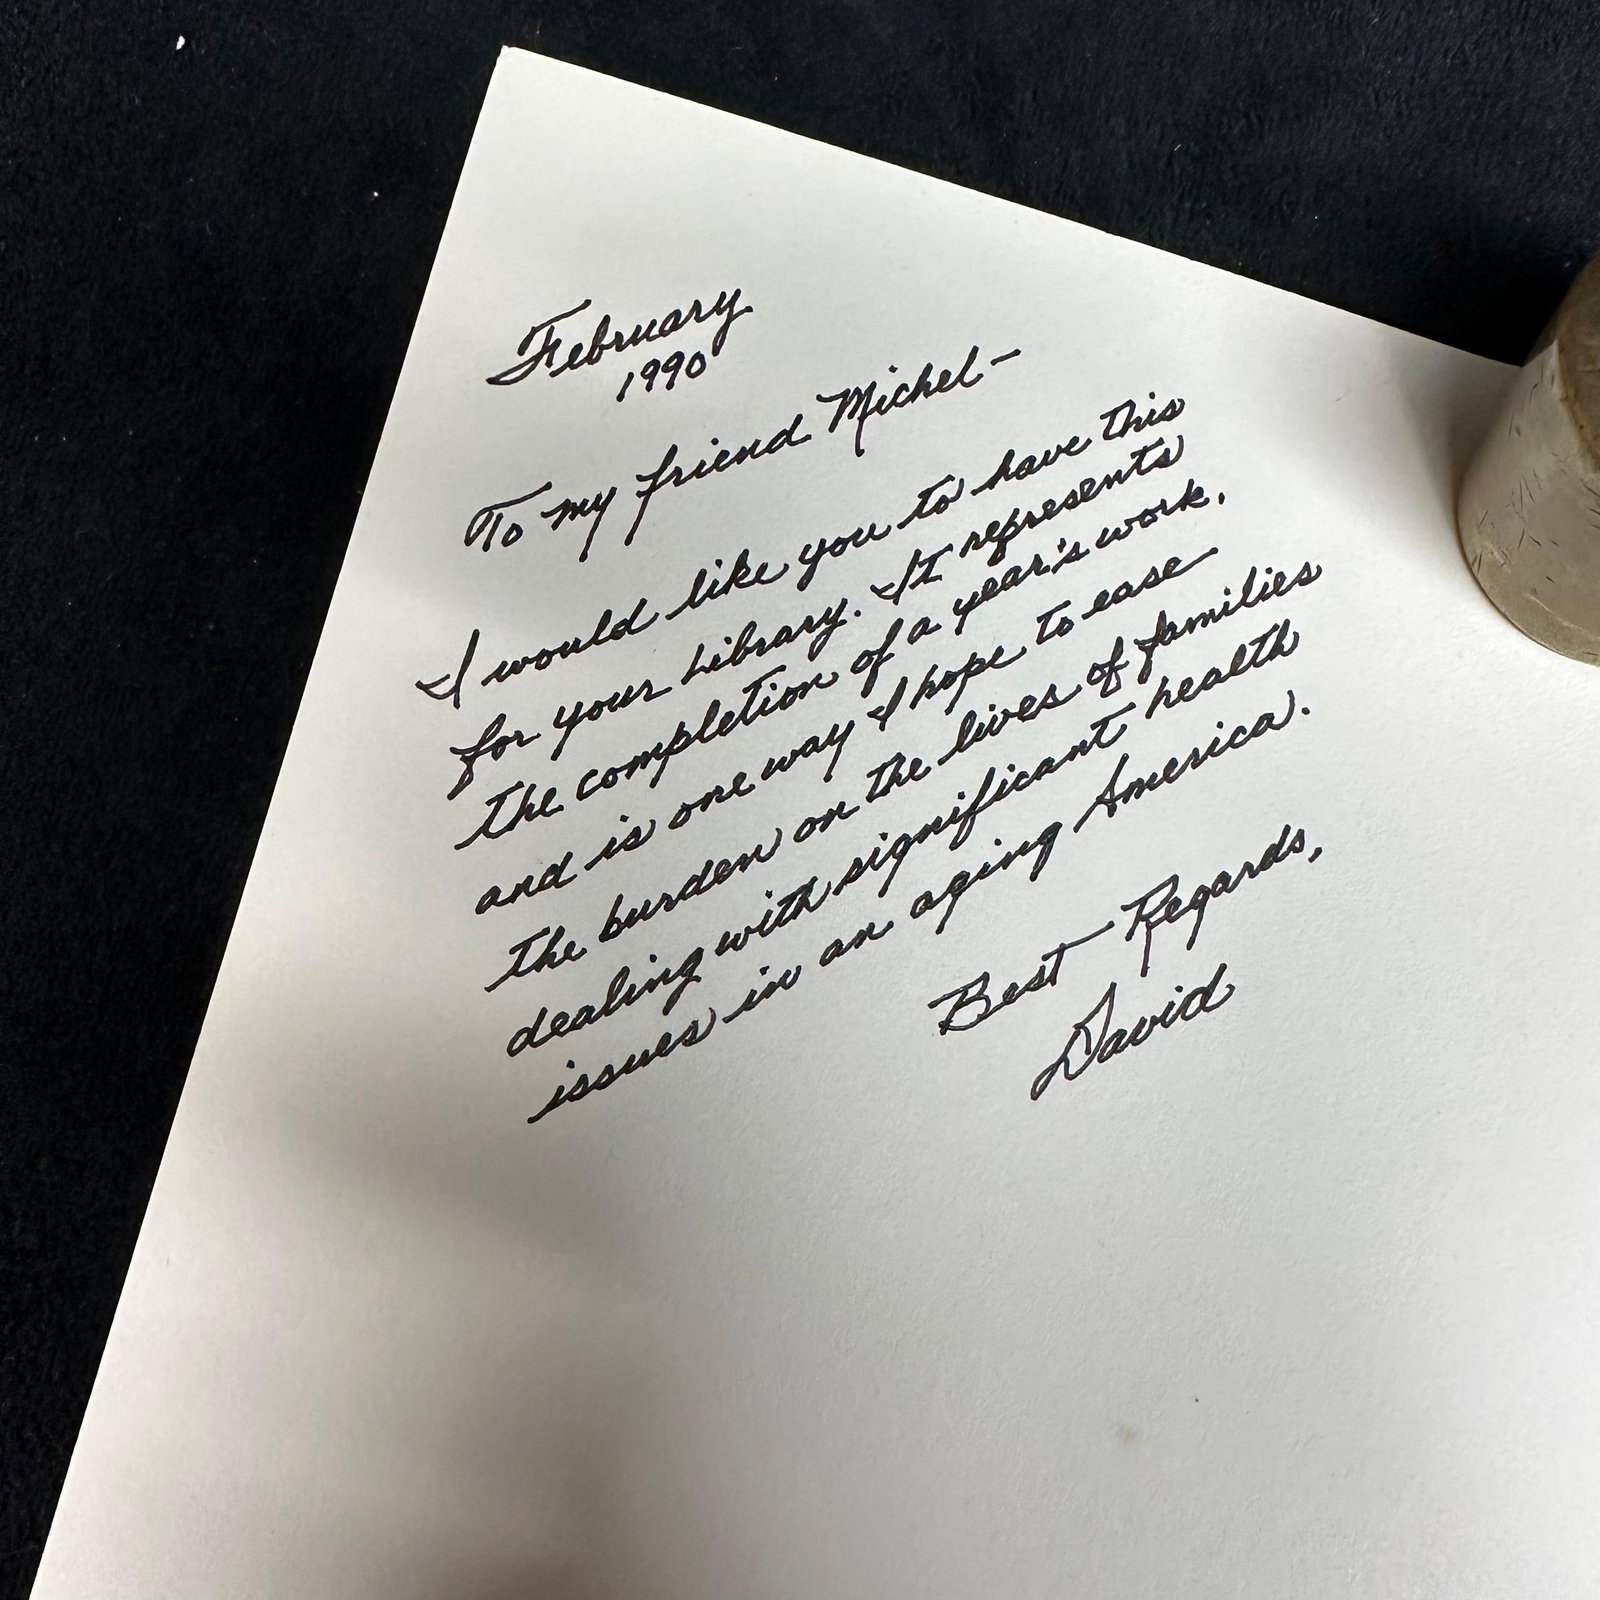 February
1990
To my friend Michel-
I would like you to have this
for your Library. It represents
the completion of a year's work,
and is one way I hope to ease
the burden on the lives of families
dealing with significant health
issues in an aging America.
Best Regards,
David